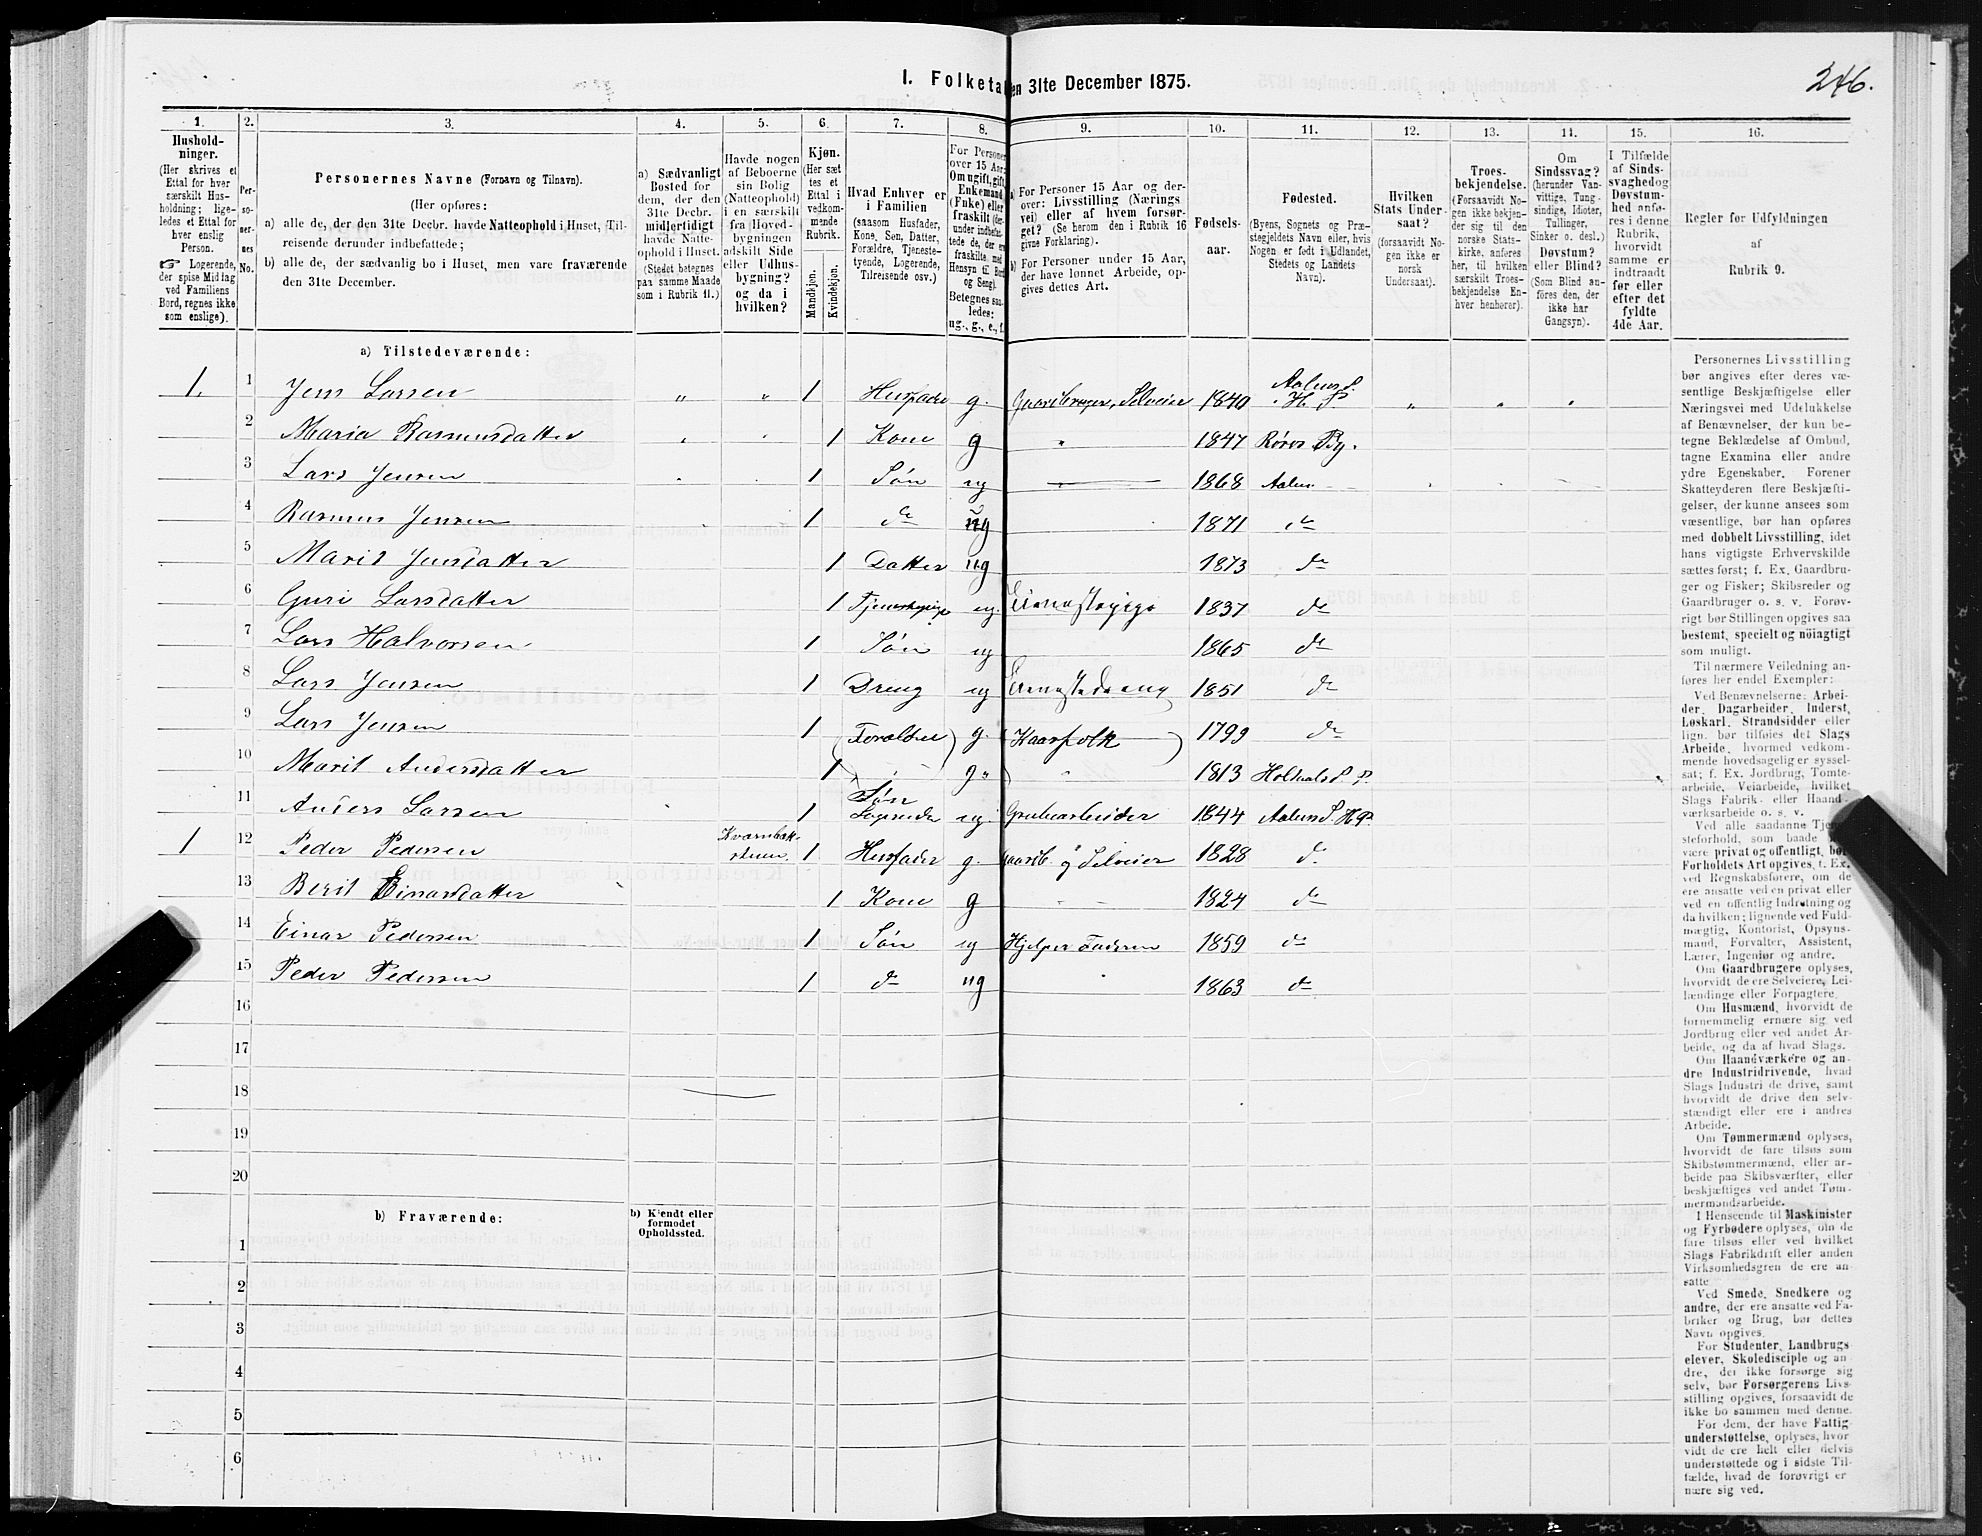 246.
I. Folketal den 31te December 1875.
1. 2. 3. 4. 5. 6. 7. 8. 9. 10. 11. 12. 13. 14. 15. 16.
Hushold-
ninger.
(Her skrives et
Ettal for hver
særskilt Hus-
holdning; lige-
ledes et Ettal for
hver enslig
Person.
☞ Logerende,
der spise Middag
ved Familiens
Bord, regnes ikke
som enslige).
Per-
so-
ner-
nes
No.
Personernes Navne (Fornavn og Tilnavn).
(Her opføres:
a) alle de, der den 31te Decbr. havde Natteophold i Huset, Til-
reisende derunder indbefattede;
b) alle de, der sædvanlig bo i Huset, men vare fraværende
den 31te December.
a) Sædvanligt
Bosted for
dem, der den
31te Decbr.
midlertidigt
havde Natte-
ophold i Huset.
(Stedet betegnes
paa samme Maade
som i Rubrik 11.)
Havde nogen
af Beboerne
sin Bolig
(Natteophold)
i en særskilt
fra Hoved-
bygningen
adskilt Side
eller Udhus-
bygning?
og da i
hvilken?
Kjøn.
(Her sæt-
tes et
Ettal i
vedkom-
mende
Rubrik.
Mandkjøn.
Kvindekjøn.
Hvad Enhver er
i Familien
(saasom Husfader,
Kone, Søn, Datter,
Forældre, Tjeneste-
tyende, Logerende,
Tilreisende osv.)
For Personer
over 15 Aar:
Om ugift, gift,
Enkemand
(Enke) eller
fraskilt (der-
under indbefat-
tede de, der ere
fraskilte med
Hensyn til Bord
og Seng).
Betegnes saa-
ledes:
ug., g., e., f.
a) For Personer 15 Aar og der-
over: Livsstilling (Nærings-
vei) eller af hvem forsør-
get? (Se herom den i Rubrik 16
givne Forklaring).
b) For Personer under 15 Aar,
der have lønnet Arbeide, op-
gives dettes Art.
Fødsels-
aar.
Fødested.
(Byens, Sognets og Præ-
stegjeldets Navn eller, hvis
Nogen er født i Udlandet,
Stedets og Landets
Navn).
Hvilken
Stats Under-
saat?
(forsaavidt No-
gen ikke er
norsk
Undersaat).
Troes-
bekjendelse.
(Forsaavidt No-
gen ikke bekjen-
der sig til den
norske Stats-
kirke, anføres
her, til hvilken
særskilt Troes-
bekjendelse En-
hver henhører).
Om
Sindssvag?
(herunder Van-
vittige, Tung-
sindige, Idioter,
Tullinger,
Sinker o. desl.)
Døvstum?
eller Blind?
(Som Blind an-
føres den, der
ikke har
Gangsyn).
I Tilfælde
af Sinds-
svaghed og
Døvstum-
hed anfø-
res i denne
Rubrik,
hvorvidt
samme er
indtraadt
før eller
efter det
fyldte
4de Aar.
Regler for Udfyldningen
af
Rubrik 9.
a) Tilstedeværende:
1. 1 Jens Larsen „ „ 1 Husfader g. Gaardbruger, Selveier 1840 Aalens S. H. P. „ „ „
2 Maria Rasmusdatter 1 Kone g „ 1847 Røros By.
3 Lars Jensen 1 Søn ug 1868 Aalen
4 Rasmus Jensen 1 do ug 1871 do
5 Marit Jensdatter 1 Datter ug 1873 do
6 Guri Larsdatter 1 Tjenestepige ug. Tjenestepige 1837 do
7 Lars Halvorsen 1 Søn ug 1865 do
8 Lars Jensen 1 Dreng ug Tjenestedreng 1851 do
9 Lars Jensen 1 Forældre g. Kaarfolk 1799 do
10 Marit Andersdatter 1 „ g. „ 1813 Holtaals S P.
11 Anders Larsen 1 Søn Logerende ug. Grubearbeider 1844 Aalens S. H P.
1 12 Peder Pedersen 1 Husfader g. Gaardb. og Selveier 1828 do
13 Berit Einarsdatter 1 Kone g 1824 do
14 Einar Pedersen 1 Søn ug Hjelper Faderen 1859 do
15 Peder Pedersen 1 do ug 1863 do
16
17
18
19
20
b) Fraværende:
b) Kjendt eller
formodet
Opholdssted.
1
2
3
4
5
6
Personernes Livsstilling
bør angives efter deres væ-
sentlige Beskjæftigelse eller
Næringsvei med Udelukkelse
af Benævnelser, der kun be-
tegne Beklædelse af Ombud,
tagne Examina eller andre
ydre Egenskaber. Forener
Skatteyderen flere Beskjæfti-
gelser, der kunne ansees som
væsentlige, bør han opføres
med dobbelt Livsstilling, idet
hans vigtigste Erhvervskilde
sættes først; f. Ex. Gaardbru-
ger og Fisker; Skibsreder og
Gaardbruger o. s. v. Forøv-
rigt bør Stillingen opgives saa
bestemt, specielt og nöiagtigt
som muligt.
Til nærmere Veiledning an-
føres her endel Exempler:
Ved Benævnelserne: Arbei-
der, Dagarbeider, Inderst,
Løskarl, Strandsidder eller
lign. bør tilføies det Slags
Arbeide, hvormed vedkom-
mende hovedsagelig er syssel-
sat; f. Ex. Jordbrug, Tomte-
arbeide, Veiarbeide, hvilket
Slags Fabrik- eller Haand-
værksarbeide o. s. v.
Ved alle saadanne Tjene-
steforhold, som baade kan
være privat og offentligt, bør
Forholdets Art opgives, t. Ex.
ved Regnskabsførere, om de
ere ansatte ved en privat eller
ved en offentlig Indretning og
da hvilken; lignende ved Fuld-
mægtig, Kontorist, Opsyns-
mand, Forvalter, Assistent,
Lærer, Ingeniør og andre.
Om Gaardbrugere oplyses,
hvorvidt de ere Selveiere, Lei-
lændinge eller Forpagtere.
Om Husmænd, hvorvidt de
fornemmelig ernære sig ved
Jordbrug eller ved andet Ar-
beide, og da af hvad Slags.
Om Haandværkere og an-
dre Industridrivende, hvad
Slags Industri de drive, samt
hvorvidt de drive den selv-
stændigt eller ere i andres
Arbeide.
Om Tømmermænd oplyses,
hvorvidt de fare tilsøs som
Skibstømmermænd, eller ar-
beide paa Skibsværfter, eller
beskjæftiges ved andet Tøm-
mermandsarbeide.
I Henseende til Maskinister
og Fyrbødere oplyses, om de
fare tilsøs eller ved hvilket
Slags Fabrikdrift eller anden
Virksomhedsgren de ere an-
satte.
Ved Smede, Snedkere og
andre, der ere ansatte ved Fa-
briker og Brug, bør dettes
Navn opgives.
For Studenter, Landbrugs-
elever, Skoledisciple og an-
dre, der ikke forsørge sig
selv, bør Forsørgerens Livs-
stilling opgives, forsaavidt de
ikke bo sammen med denne.
For dem, der have Fattig-
understøttelse, oplyses, hvor-
vidt de ere helt eller delvis
understøttede og i sidste Til-
fælde, hvad de forøvrigt er-
nære sig ved.